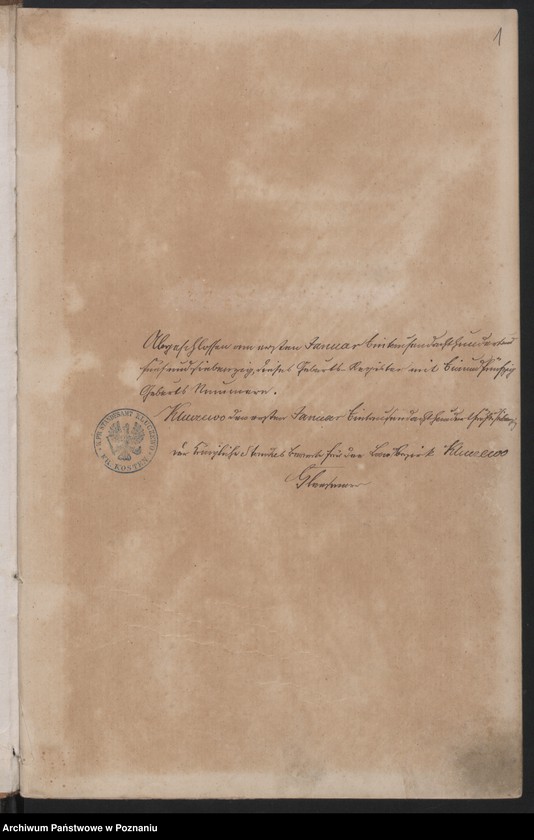 1
Abgeschlossen am ersten Januar Eintausendachthundert
fünfundsiebenzig, dieses Geburts Register mit
Geburts Nummern.
Kluczewo den ersten Januar Eintausendachthundert
der Königliche Standes Beamte für den Bezirk Kluczewo
K. PR. STANDESAMT KLUCZEWO
KR. KOSTEN
Archiwum Państwowe w Poznaniu